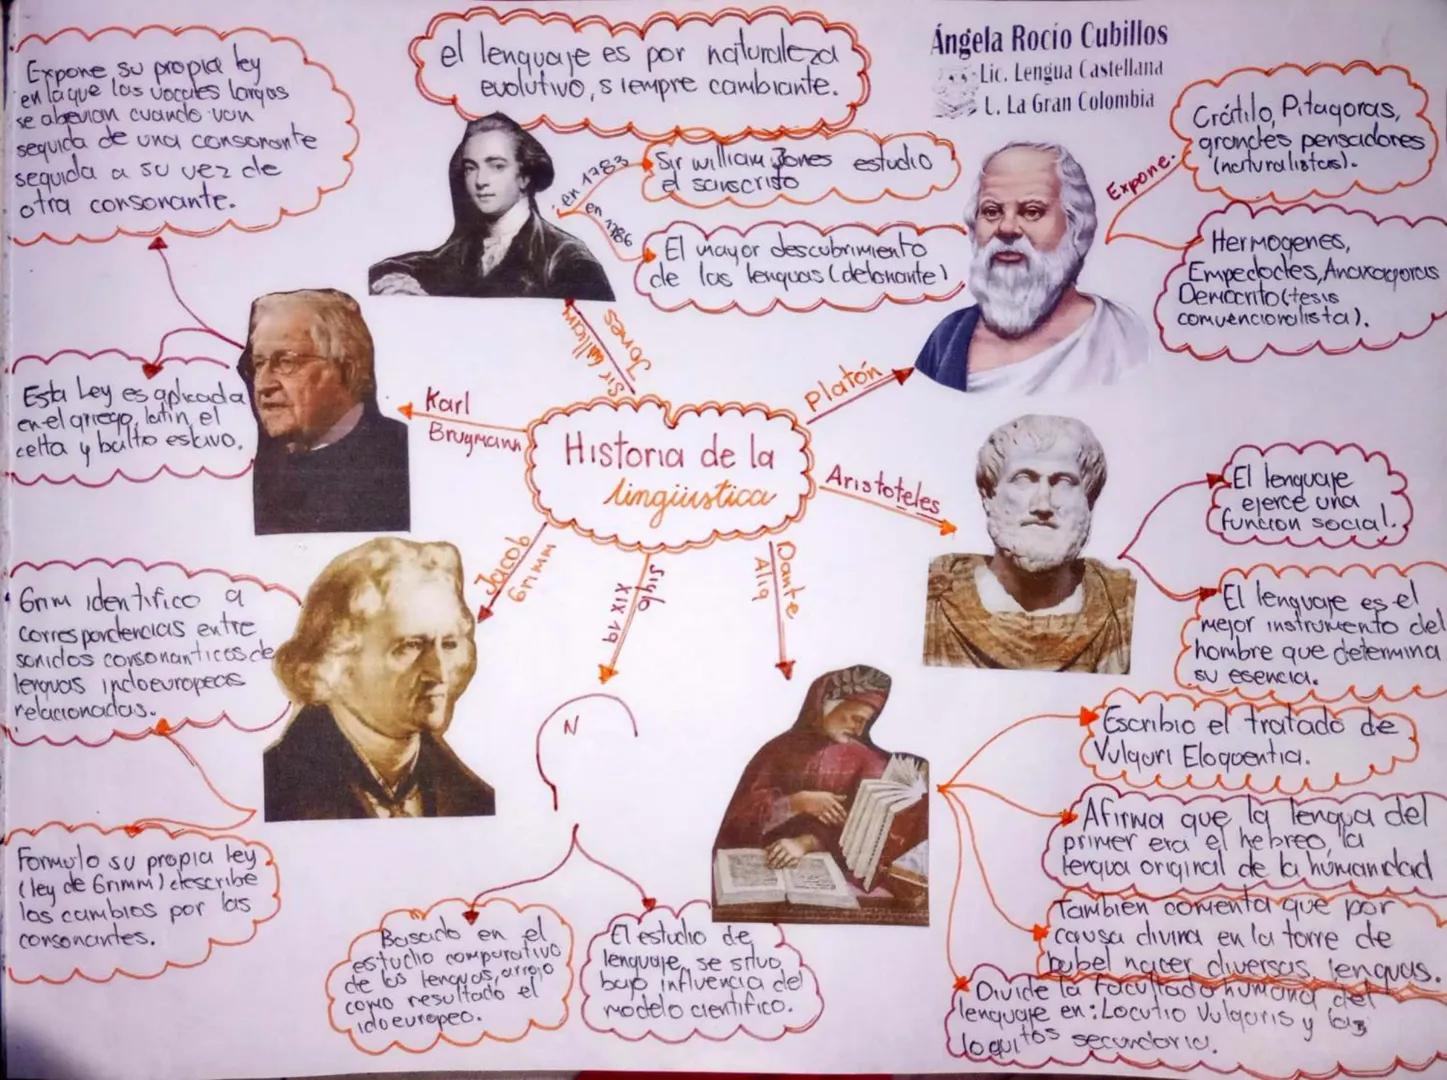 Expone su propia ley
en la que las vocales largas
se abrevian cuando van
seguida de una consonante
seguida a su vez de
otra consonante.
el lenguaje es por naturaleza
evolutivo, siempre cambiante.
Ángela Rocío Cubillos
Lic. Lengua Castellana
L. La Gran Colombia
en 1783
Sir william Jones estudio
el sanscrito
en 1786
El mayor descubrimiento
de las lenguas (detonante)
Expone.
Crátilo, Pitagoras,
grandes pensadores
(naturalistas).
Hermogenes,
Empedocles, Anaxagoras
Democrito (tesis
comvencionalista).
Esta Ley es aplicada
en el griego, latin, el
celta y balto eslavo.
Sir william
Jones
Karl
Brugmann
Historia de la
lingüística
Platón
Aristoteles
El lenguaje
ejerce una
funcion social.
El lenguaje es el
mejor instrumento del
hombre que determina
su esencia.
Jacob
Grimm
Siglo
XIX
Dante
Grim identifico a
correspondencias entre
sonidos consonanticos de
lenguas indoeuropeas
relacionadas.
N
Formulo su propia ley
(ley de Grimm) describe
los cambios por las
consonantes.
Basado en el
estudio comparativo
de las lenguas, arrojo
como resultado el
idoeuropeo.
El estudio de
lenguaje, se situo
bajo influencia del
modelo cientifico.
Escribio el tratado de
Vulgari Eloquentia.
Afirma que la lengua del
primer era el hebreo, la
lengua original de la húmanidad
Tambien comenta que por
causa divina en la torre de
babel nacer diversas lenguas.
Divide la facultad humana del
lenguaje en: Locutio Vulgaris y las
loquitos secundaria.